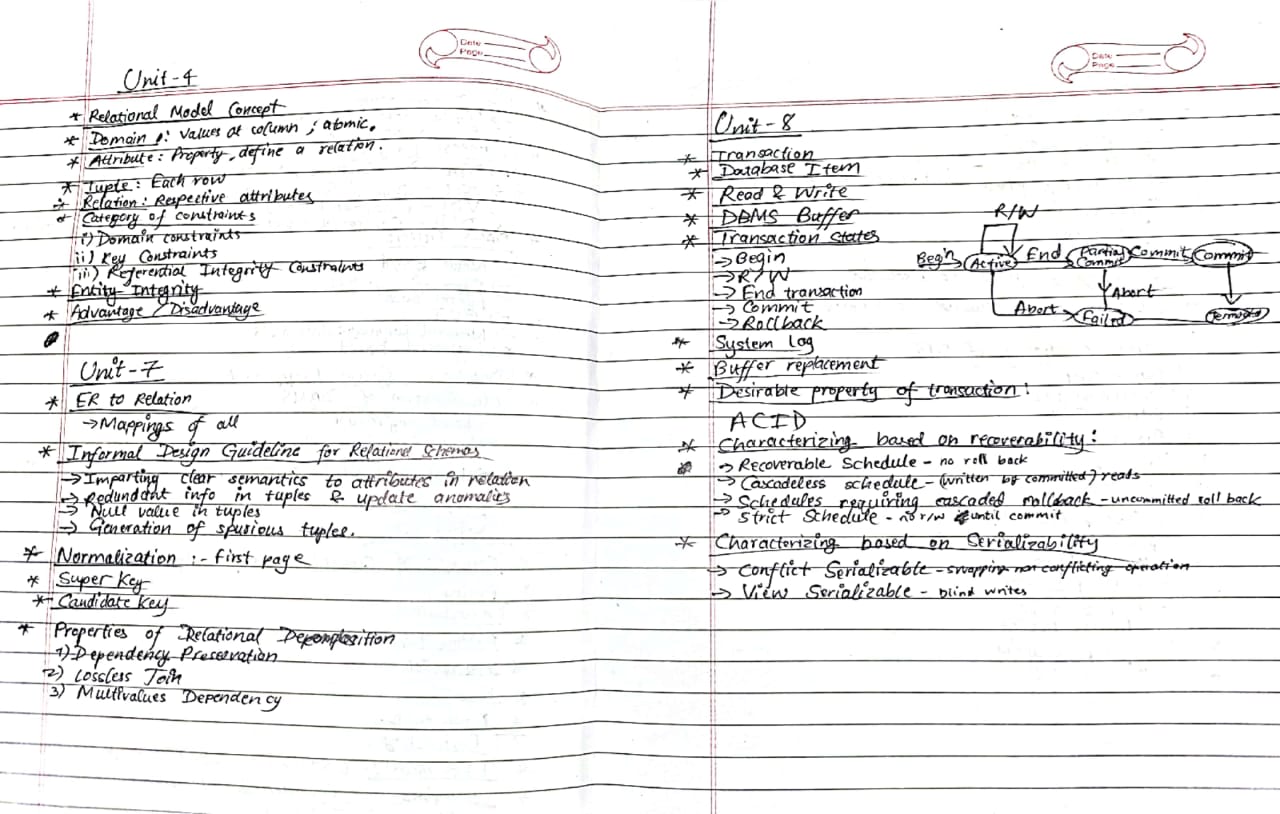 Date
Page
Unit-4
* Relational Model Concept
* Domain : Values at column ; atomic.
* Attribute : Property, define a relation.
* Tuple : Each row
* Relation : Respective attributes
* Category of constraints
i) Domain constraints
ii) Key Constraints
iii) Referential Integrity Constraints
* Entity Integrity
* Advantage / Disadvantage
Unit-7
* ER to Relation
→ Mappings of all
* Informal Design Guideline for Relational Schemas
→ Imparting clear semantics to attributes in relation
→ Redundant info in tuples & update anomalies
→ Null value in tuples
→ Generation of spurious tuples.
* Normalization :- first page
* Super Key
* Candidate Key
* Properties of Relational Decomposition
1) Dependency Preservation
2) Lossless Join
3) Multivalues Dependency
Date
Page
Unit-8
* Transaction
* Database Item
* Read & Write
* DBMS Buffer
* Transaction States
→ Begin
→ R/W
→ End transaction
→ Commit
→ Rollback
R/W
Begin Active End Partial Commit Commit Commit
Abort
Abort Failed Terminate
* System log
* Buffer replacement
* Desirable property of transaction :
ACID
* Characterizing based on recoverability :
→ Recoverable Schedule - no roll back
→ Cascadeless schedule - (written by committed) reads
→ Schedules requiring cascaded rollback - uncommitted roll back
→ Strict Schedule - no r/w until commit
* Characterizing based on Serializability
→ Conflict Serializable - swapping non conflicting operation
→ View Serializable - blind writes